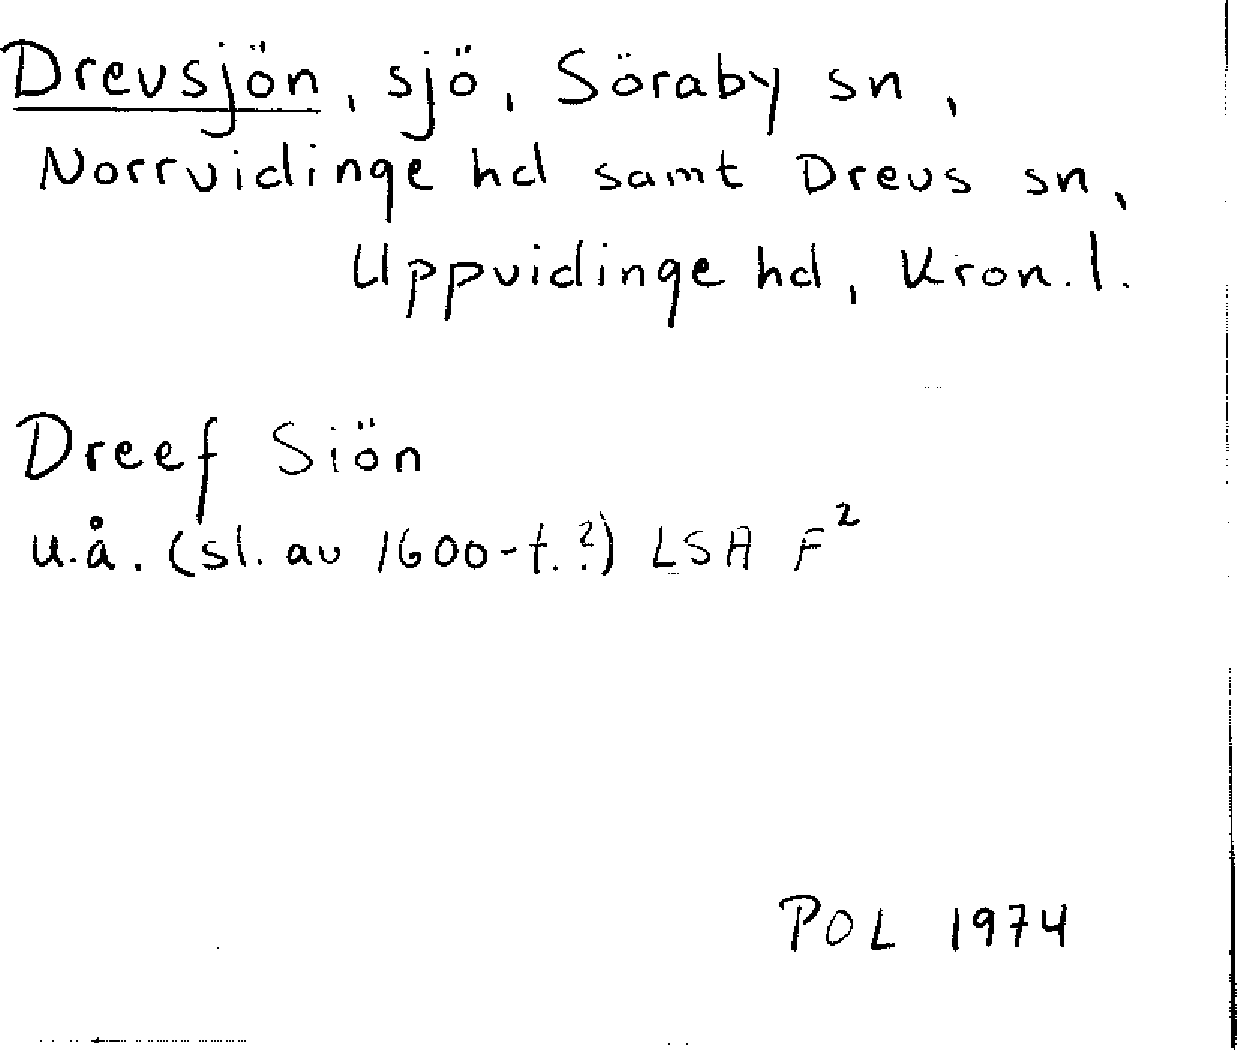 Drevsjön, sjö, Söraby sn,
Norrvidinge hd samt Drevs sn,
Uppvidinge hd, Kron. l.
Dreef Siön
u.å. (sl. av 1600-t.?) LSA F²
POL 1974